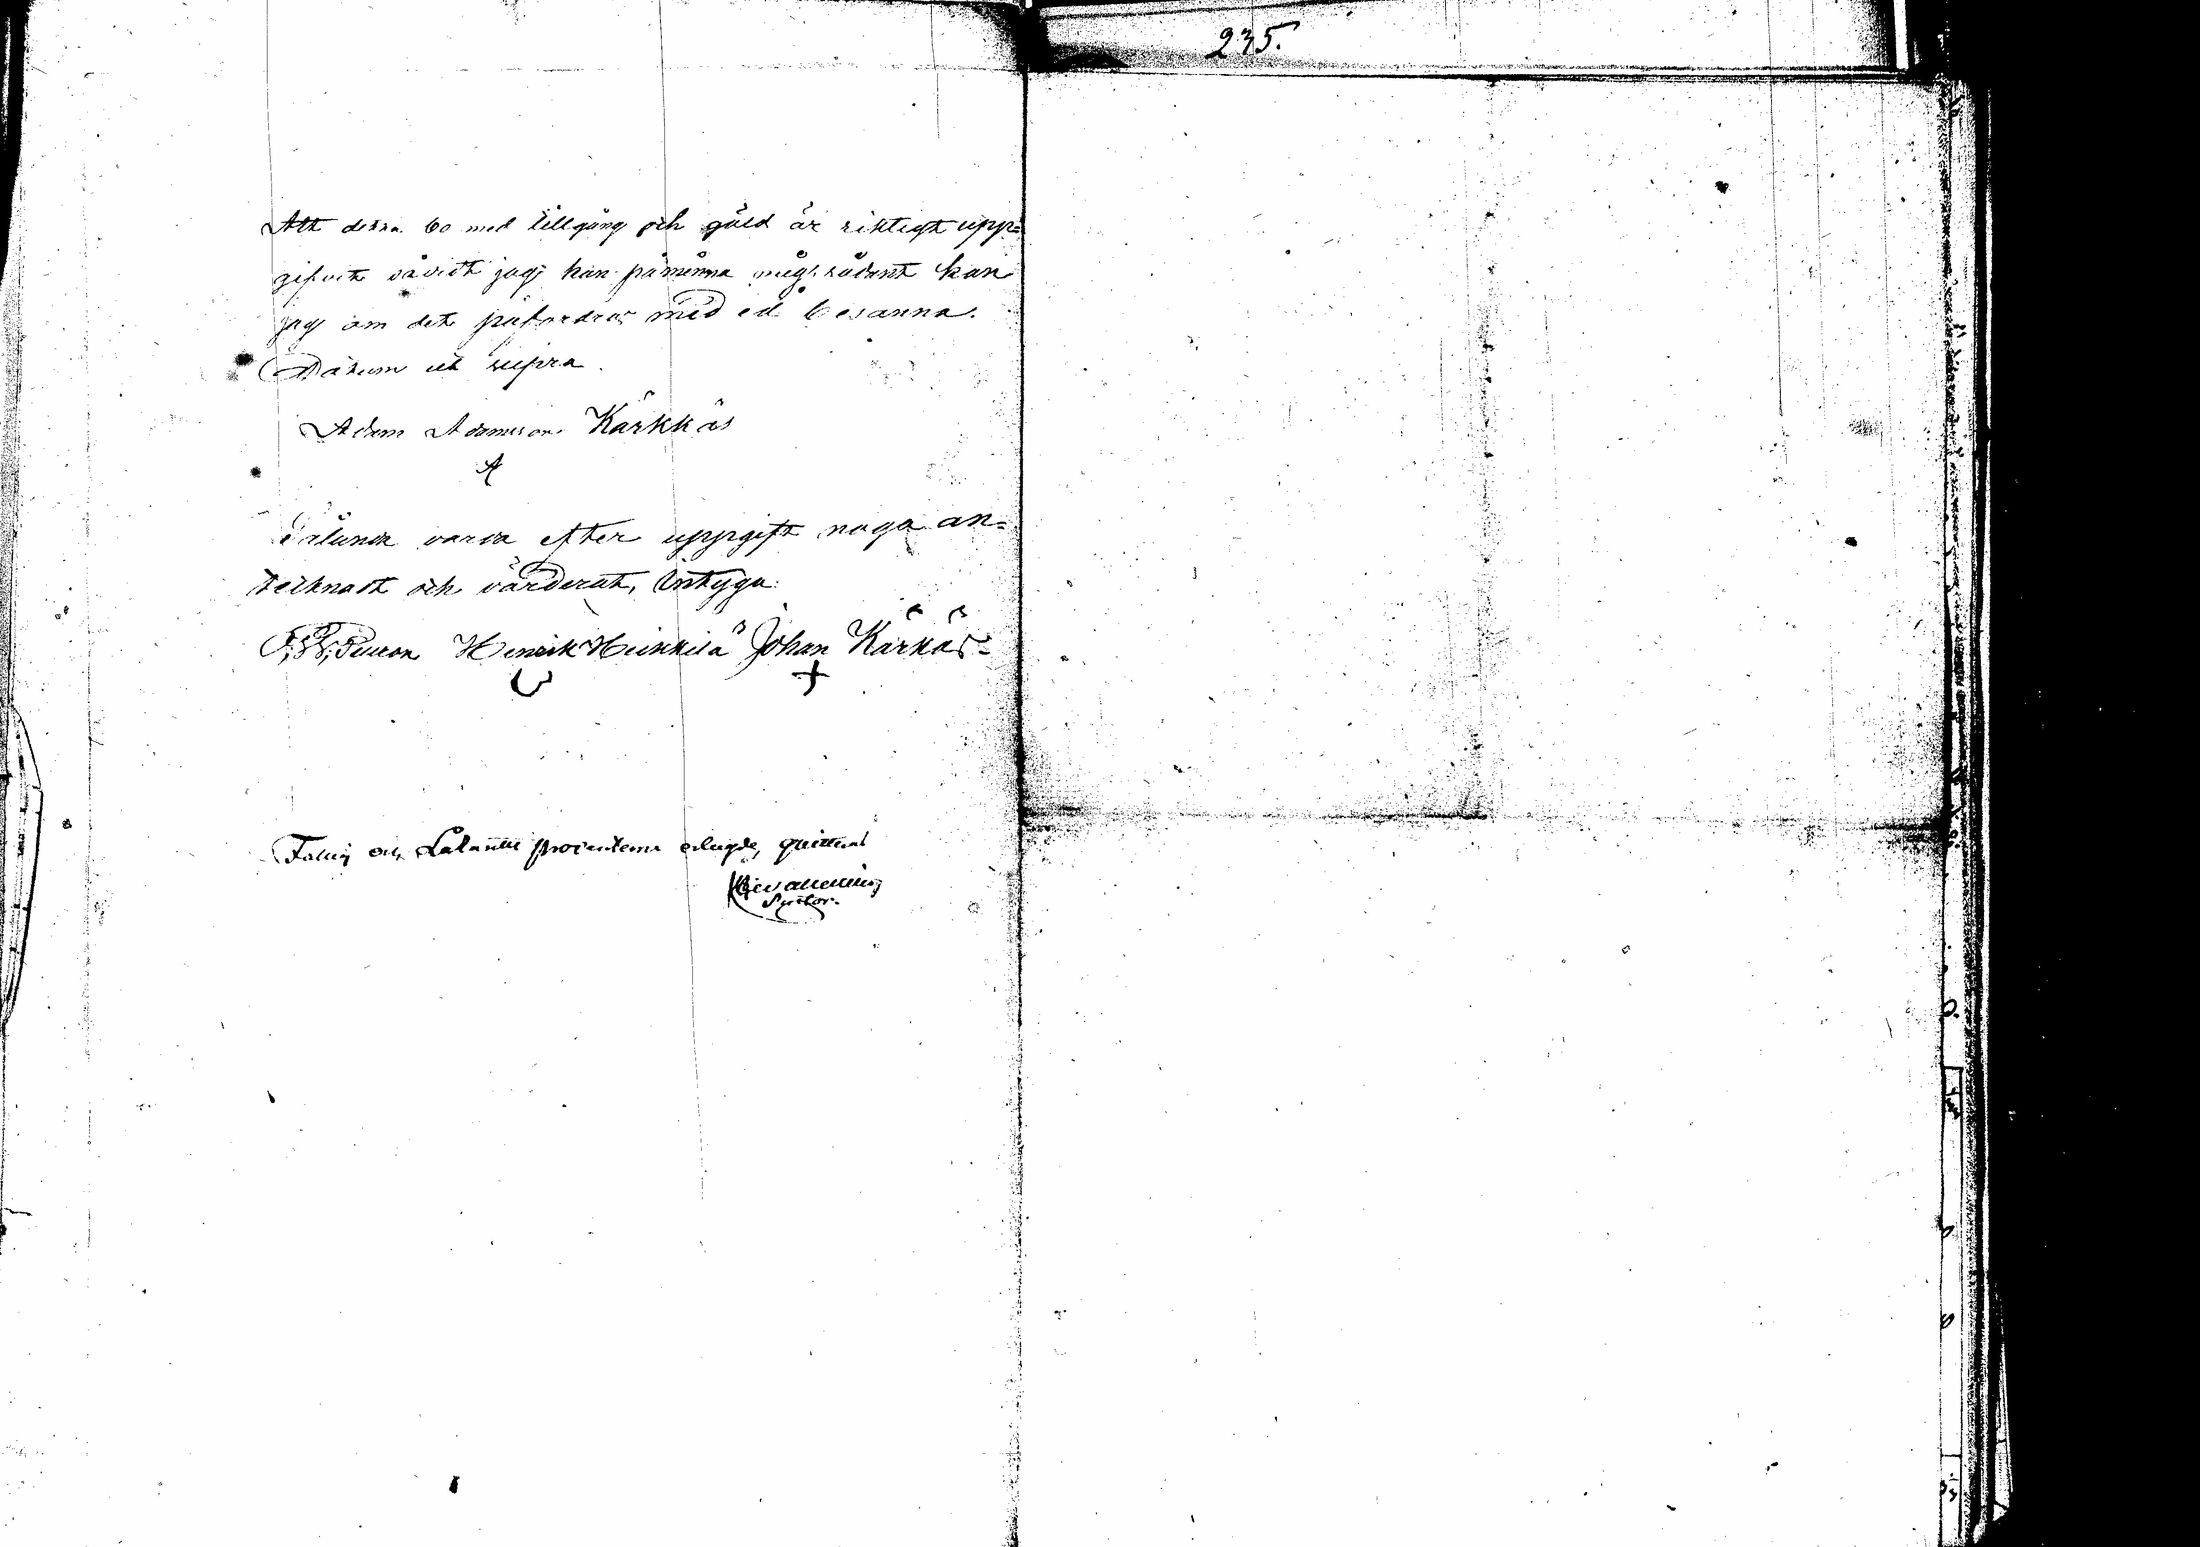 235.
Att detta bo med tillgång och gäld är riktigt upp=
gifvit såvidt jag kan påminna mig, sådant kan
jag om det påfordras med ed besanna.
Datum ut supra
Adam Adamsson Kärkkäs
A
Sålunda vara efter uppgift noga an=
tecknadt och värderat, intyga:
Henrik Heikkilä Johan Kärkäs
Fattig och procenterne erlagde, quitteras